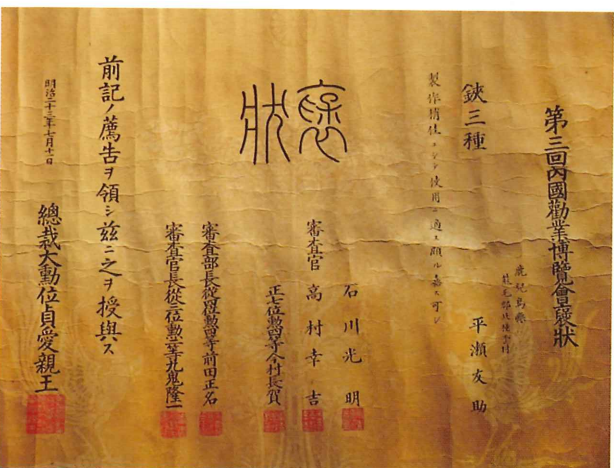 第三回內國勸業博覽會褒狀
鹿兒島縣
平瀬友助
鋏三種
製作精佳ニシテ使用ニ適ス頗ル嘉ス可シ
褒狀
石川光明
審査官 高村幸吉
正七位勳四等今村長賀
審査部長從四位勳四等前田正名
審査官長從三位勳二等九鬼隆一
前記ノ薦告ヲ領シ茲ニ之ヲ授與ス
明治二十三年七月十一日
總裁大勳位貞愛親王